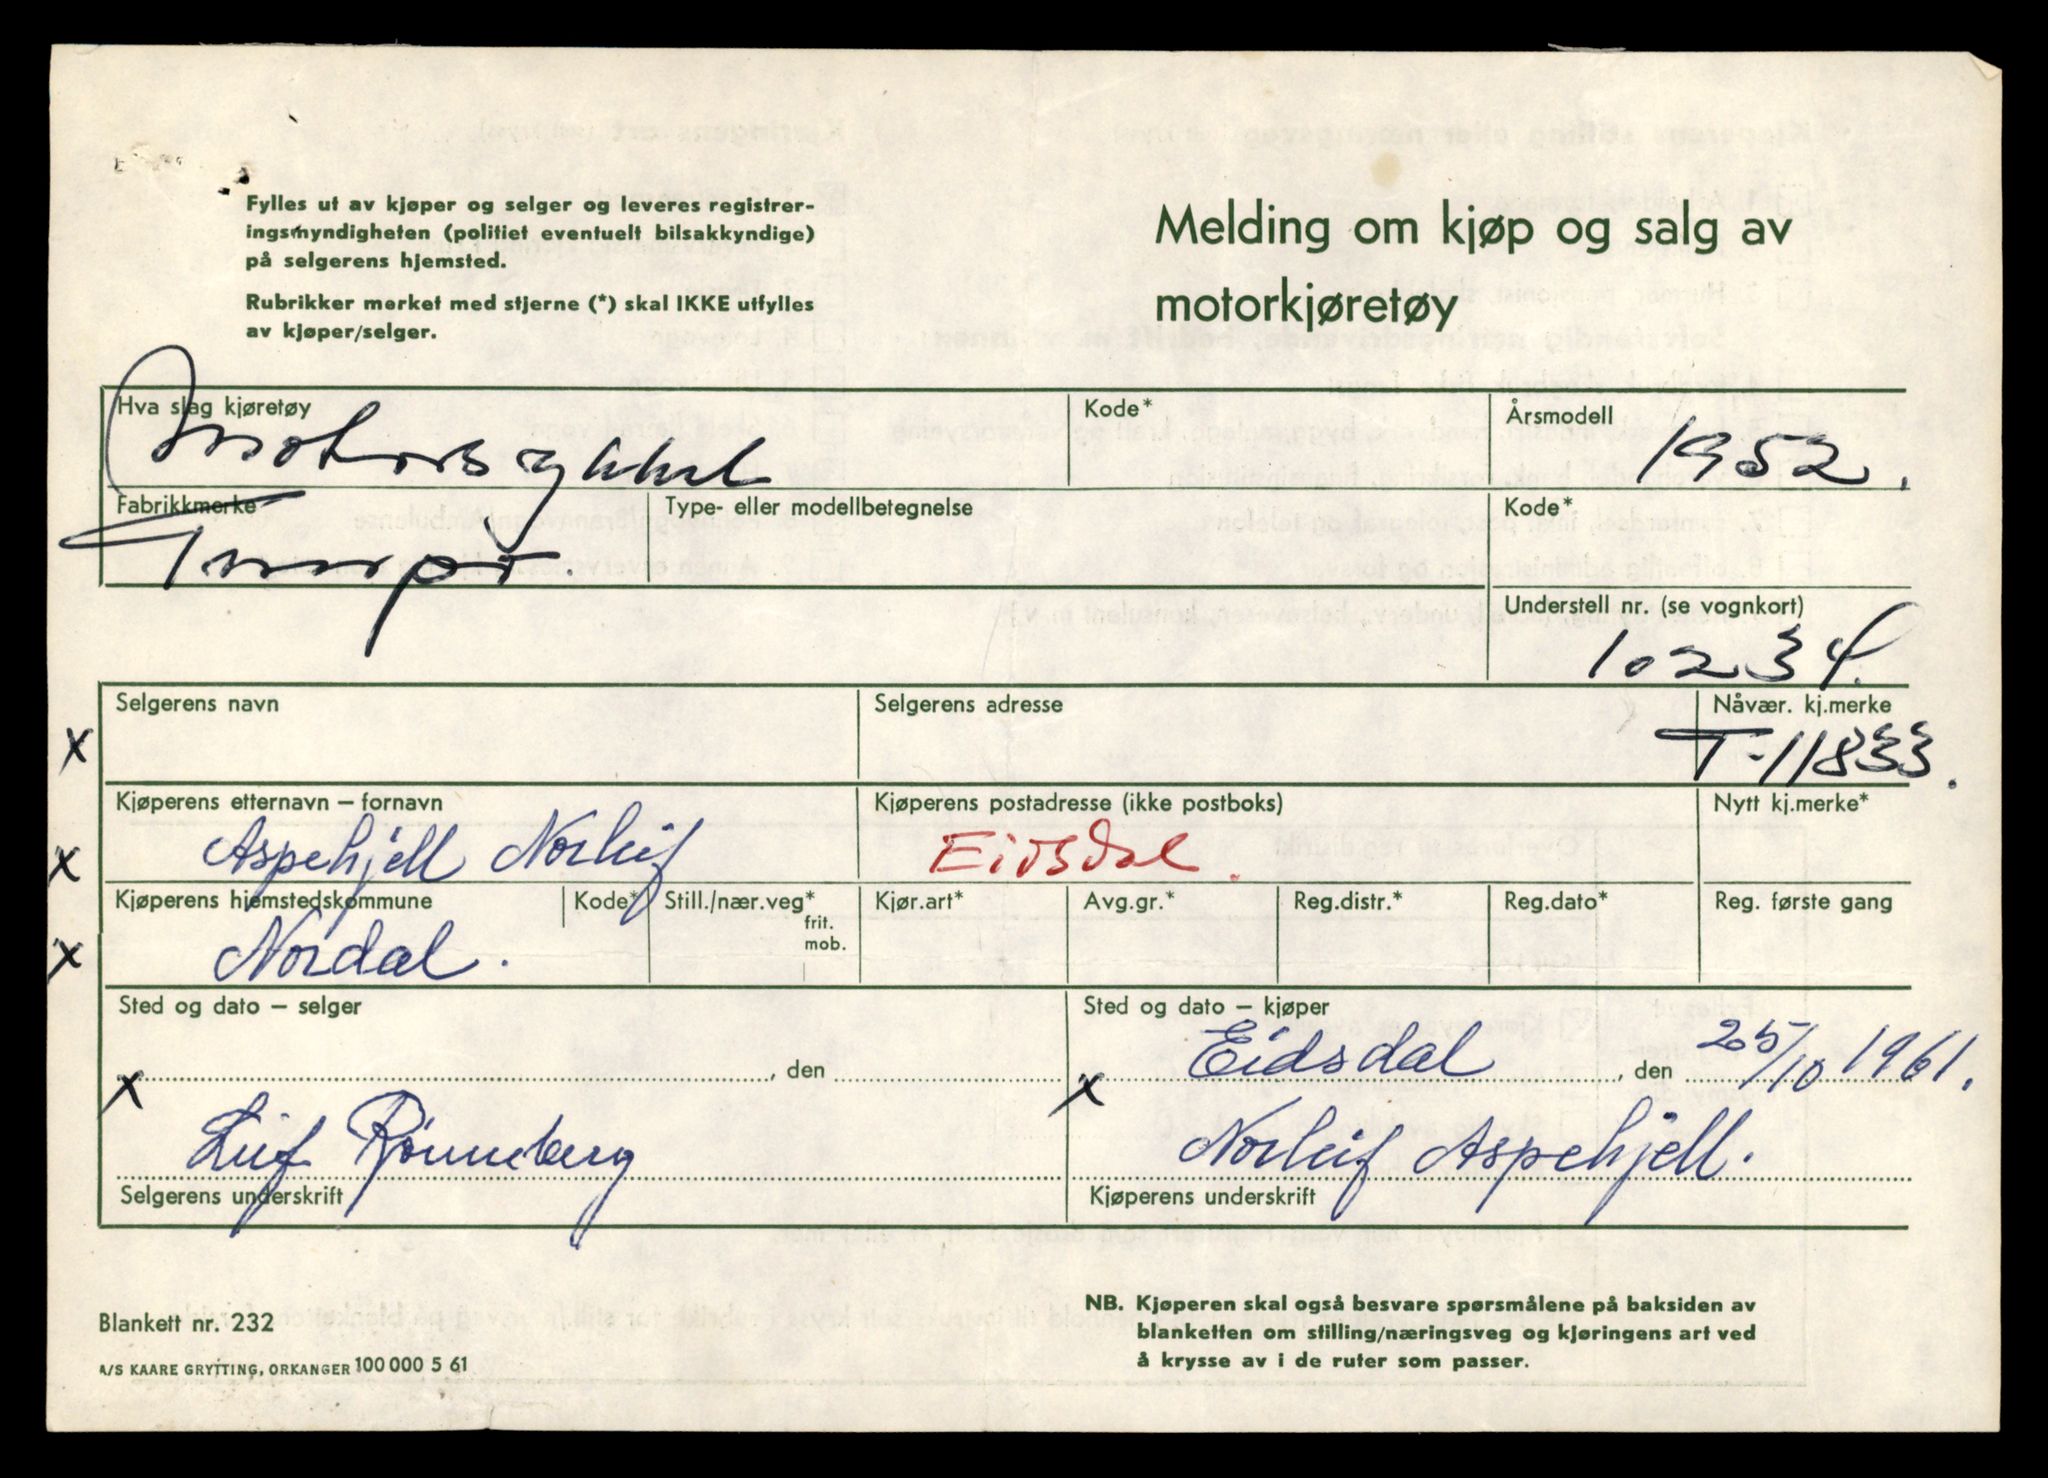 Fylles ut av kjøper og selger og leveres registrer-
ingsmyndigheten (politiet eventuelt bilsakkyndige)
på selgerens hjemsted.
Rubrikker merket med stjerne (*) skal IKKE utfylles
av kjøper/selger.
Melding om kjøp og salg av
motorkjøretøy
Hva slag kjøretøy
Motorsykkel
Kode*
Årsmodell
1952.
Fabrikkmerke
Type- eller modellbetegnelse
Kode*
Understell nr. (se vognkort)
10234.
Selgerens navn
Selgerens adresse
Nåvær. kj.merke
X
T-11833.
Kjøperens etternavn – fornavn
Kjøperens postadresse (ikke postboks)
Nytt kj.merke*
X
Aspehjell Norleif
Eidsdal.
Kjøperens hjemstedskommune
Kode*
Still./nær.veg*
frit.
mob.
Kjør.art*
Avg.gr.*
Reg.distr.*
Reg.dato*
Reg. første gang
X
Nordal.
Sted og dato – selger
Sted og dato – kjøper
X
, den
X
Eidsdal, den 25/10 1961.
Leif Rønneberg
Norleif Aspehjell.
Selgerens underskrift
Kjøperens underskrift
Blankett nr. 232
A/S KAARE GRYTTING, ORKANGER 100 000 5 61
NB. Kjøperen skal også besvare spørsmålene på baksiden av
blanketten om stilling/næringsveg og kjøringens art ved
å krysse av i de ruter som passer.